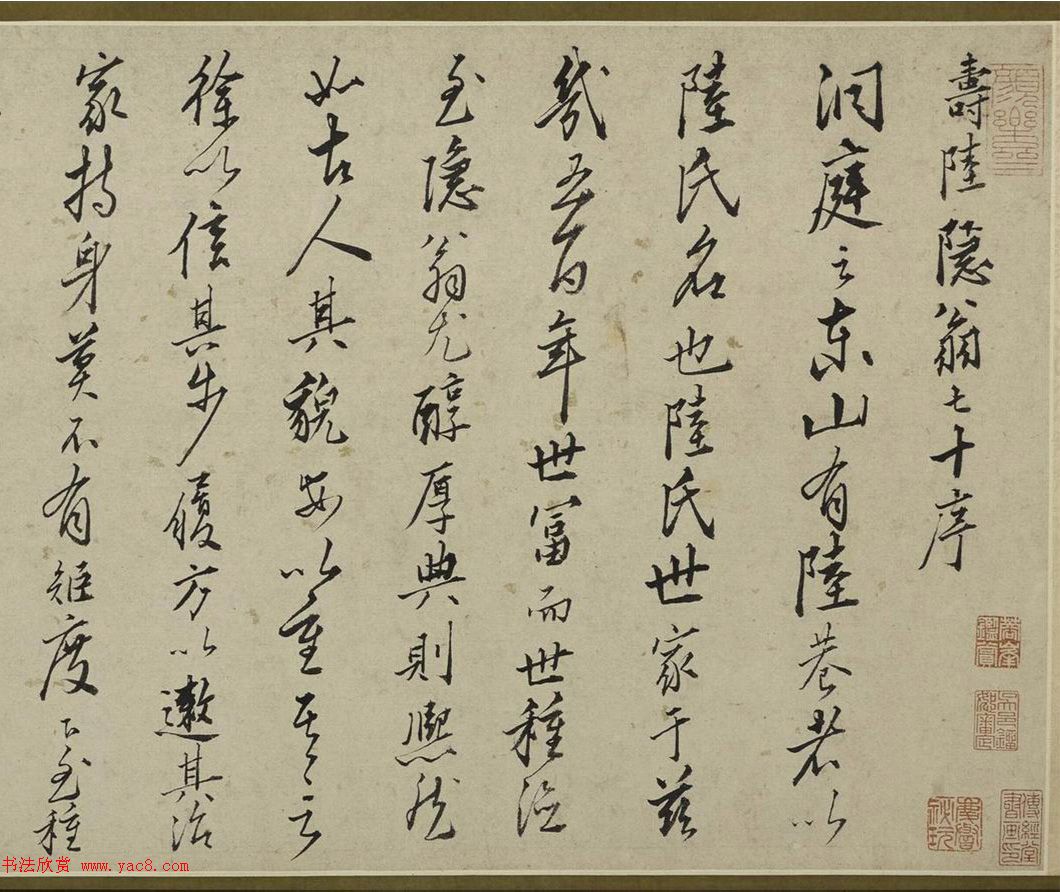 壽陸隱翁七十序
洞庭之東山有陸巷者以
陸氏名也陸氏世家于茲
幾五百年世富而世種德
至隱翁尤醇厚典則熙然
如古人其貌安以重其言
徐以信其步履方以遬其治
家持身莫不有矩度下至種
書法欣赏 www.yac8.com